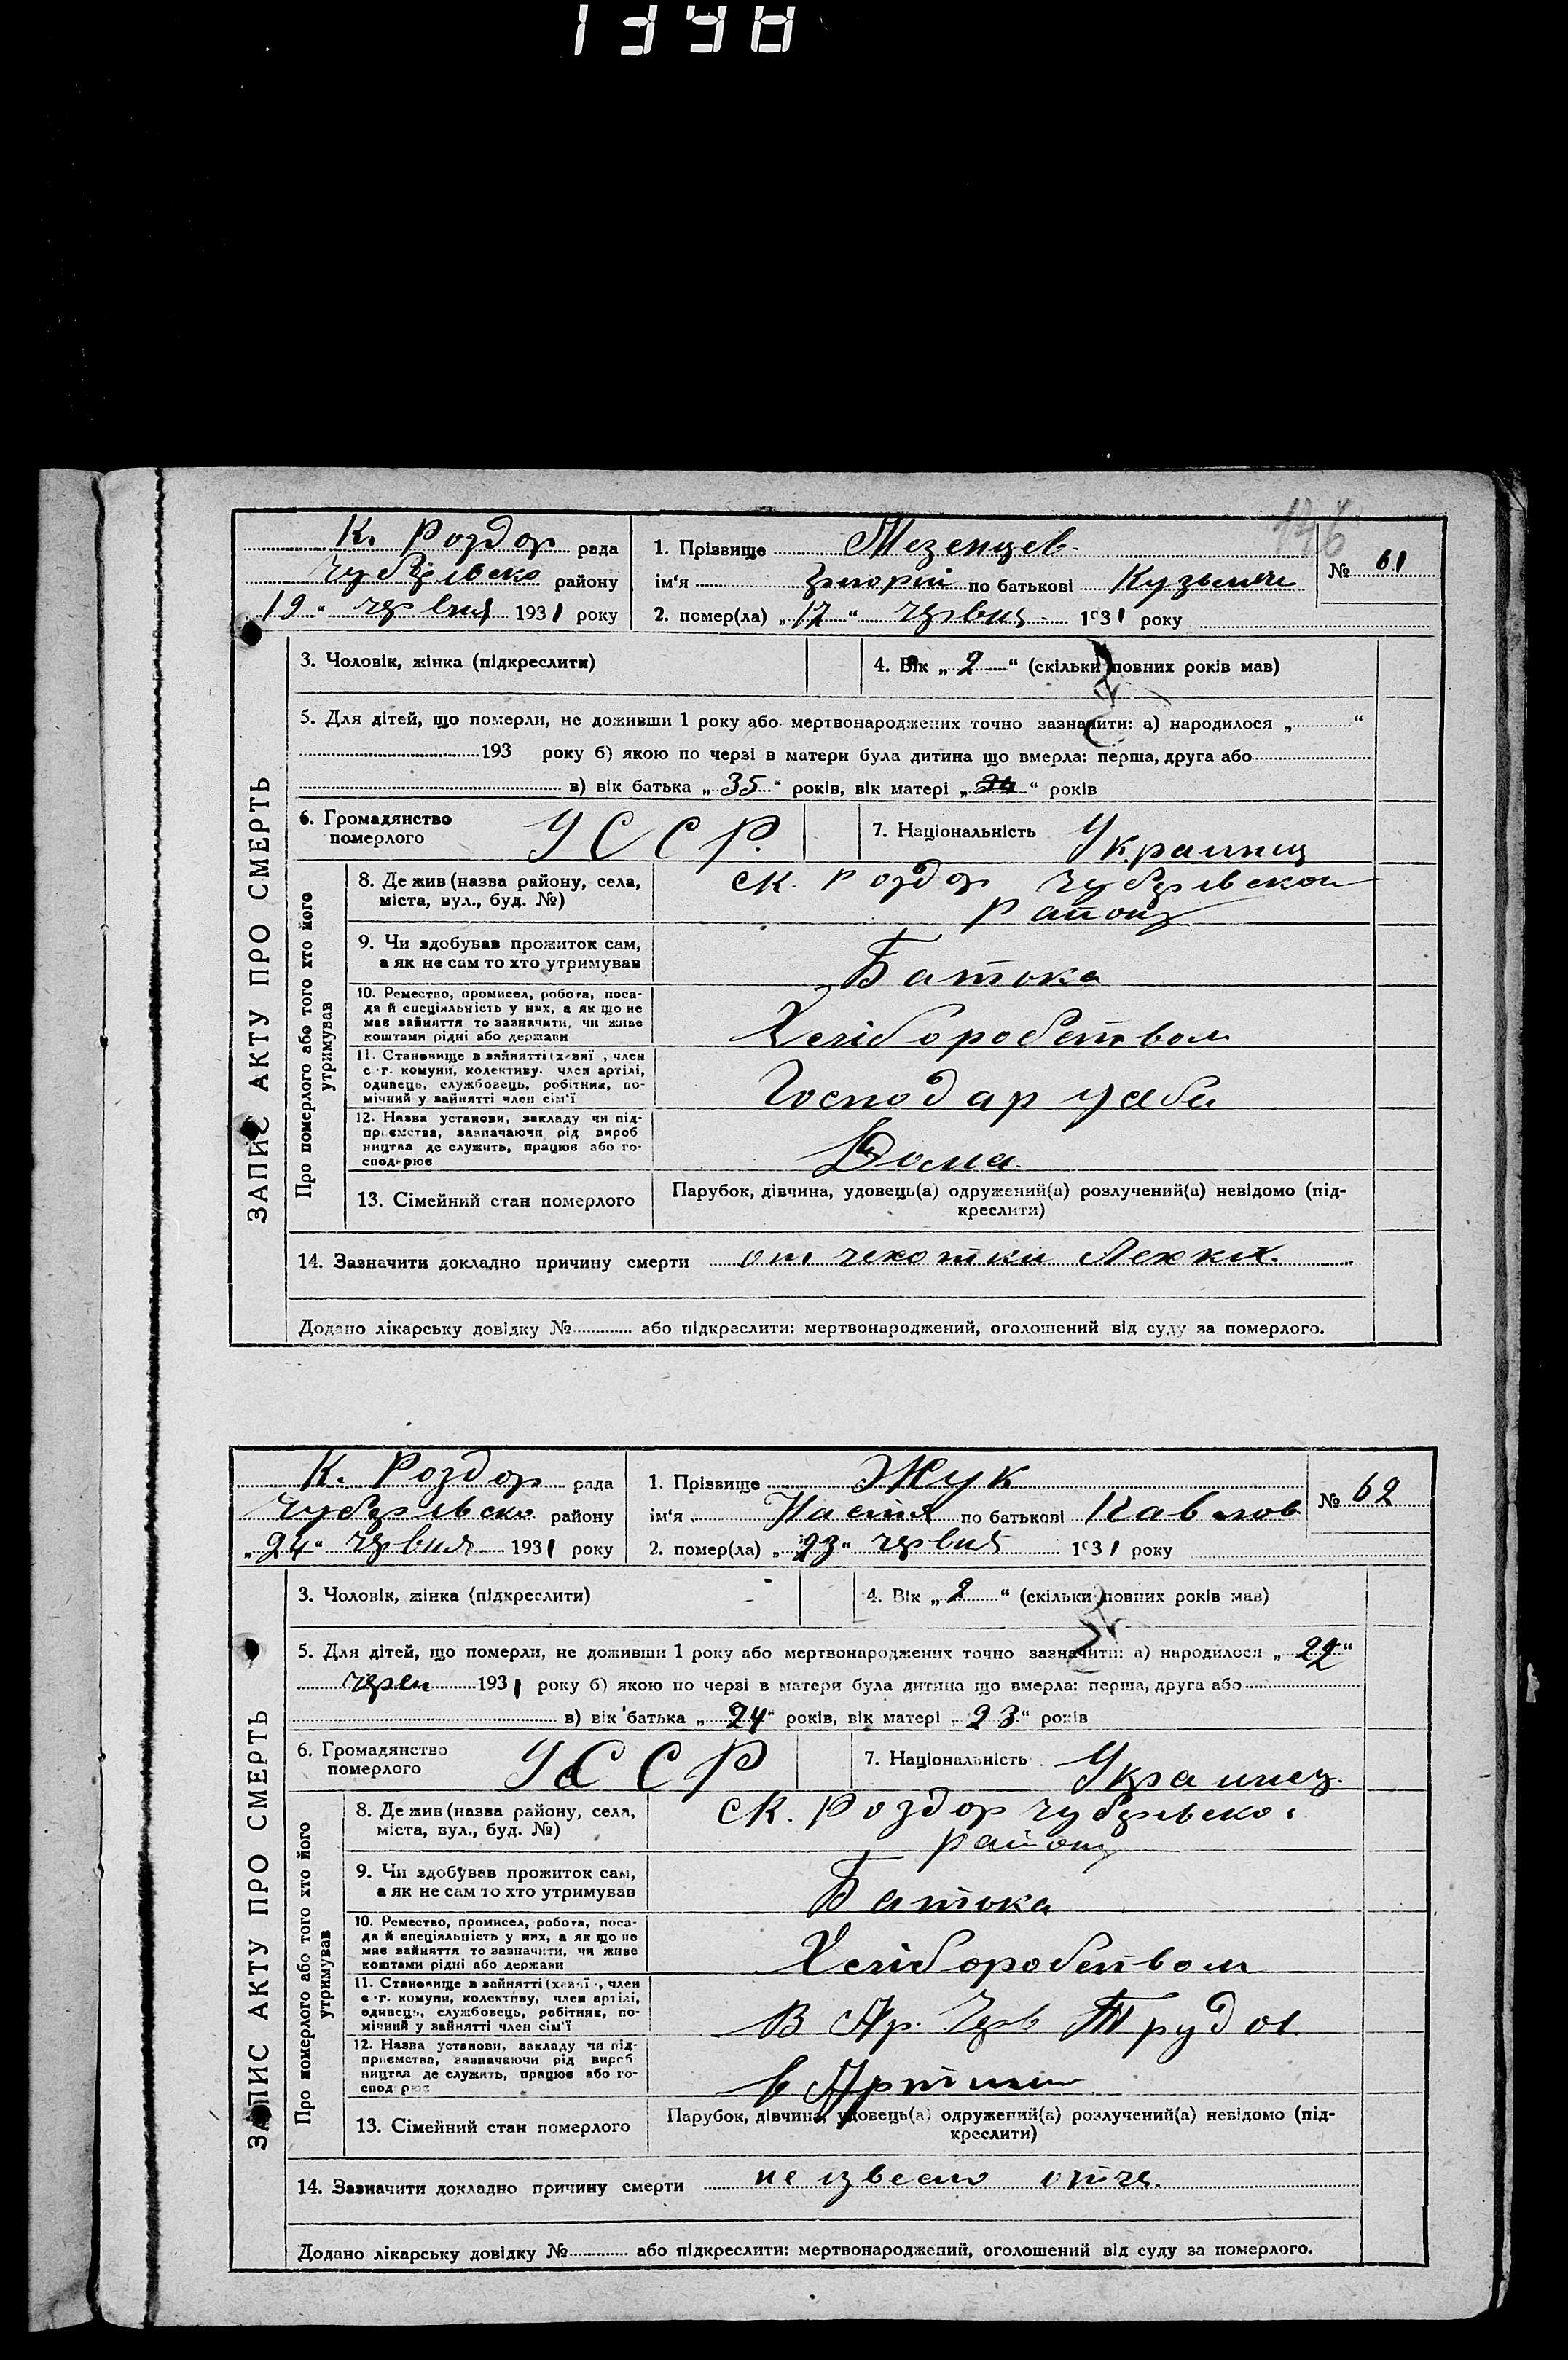 1398
176
К. Роздор рада
Чубарівсько району
"19" червня 1931 року
1. Прізвище Мезенцев
ім'я Григорій по батькові Кузьмич
2. помер(ла) „17“ червня 1931 року
№ 61
ЗАПИС АКТУ ПРО СМЕРТЬ
3. Чоловік, жінка (підкреслити)
4. Вік „2“ (скільки повних років мав)
5. Для дітей, що померли, не доживши 1 року або мертвонароджених точно зазначити: а) народилося „ “
193 року б) якою по черзі в матери була дитина що вмерла: перша, друга або
в) вік батька „35“ років, вік матері „ “ років
6. Громадянство померлого УССР.
7. Національність Украинец
Про померлого або того хто його утримував
8. Де жив (назва району, села, міста, вул., буд. №)
ск. Роздор Чубарівском
району
9. Чи здобував прожиток сам, а як не сам то хто утримував
Батька
10. Ремество, промисел, робота, поса-
да й спеціяльність у них, а як що не
має зайняття то зазначити, чи живе
коштами рідні або держави
Хлібороботвом
11. Становище в зайнятті (хазяї , член
с.-г. комуни, колективу, член артілі,
одинець, службовець, робітник, по-
мічний у зайнятті член сім'ї
Господар у себе
12. Назва установи, закладу чи під-
приємства, зазначаючи рід вироб
ництва де служить, працює або го-
сподарює
Дома
13. Сімейний стан померлого
Парубок, дівчина, удовець(а) одружений(а) розлучений(а) невідомо (під-
креслити)
14. Зазначити докладно причину смерти от чехотки Легких.
Додано лікарську довідку № або підкреслити: мертвонароджений, оголошений від суду за померлого.
К. Роздор рада
Чубарівсько району
„24“ червня 1931 року
1. Прізвище Жук
ім'я Настя по батькові Павлов
2. помер(ла) „23“ червня 1931 року
№ 62
ЗАПИС АКТУ ПРО СМЕРТЬ
3. Чоловік, жінка (підкреслити)
4. Вік „2“ (скільки повних років мав)
5. Для дітей, що померли, не доживши 1 року або мертвонароджених точно зазначити: а) народилося „22“
1931 року б) якою по черзі в матери була дитина що вмерла: перша, друга або
в) вік батька „24“ років, вік матері „23“ років
6. Громадянство померлого УССР
7. Національність Украинец.
Про померлого або того хто його утримував
8. Де жив (назва району, села, міста, вул., буд. №)
ск. Роздор Чубарівсько.
району
9. Чи здобував прожиток сам, а як не сам то хто утримував
Батька
10. Ремество, промисел, робота, поса-
да й спеціяльність у них, а як що не
має зайняття то зазначити, чи живе
коштами рідні або держави
Хлібороботвом
11. Становище в зайнятті (хазяї , член
с.-г. комуни, колективу, член артілі,
одинець, службовець, робітник, по-
мічний у зайнятті член сім'ї
В Ар. Чрв Трудов.
12. Назва установи, закладу чи під-
приємства, зазначаючи рід вироб
ництва де служить, працює або го-
сподарює
в Артели
13. Сімейний стан померлого
Парубок, дівчина, удовець(а) одружений(а) розлучений(а) невідомо (під-
креслити)
14. Зазначити докладно причину смерти не извесно отчя.
Додано лікарську довідку № або підкреслити: мертвонароджений, оголошений від суду за померлого.